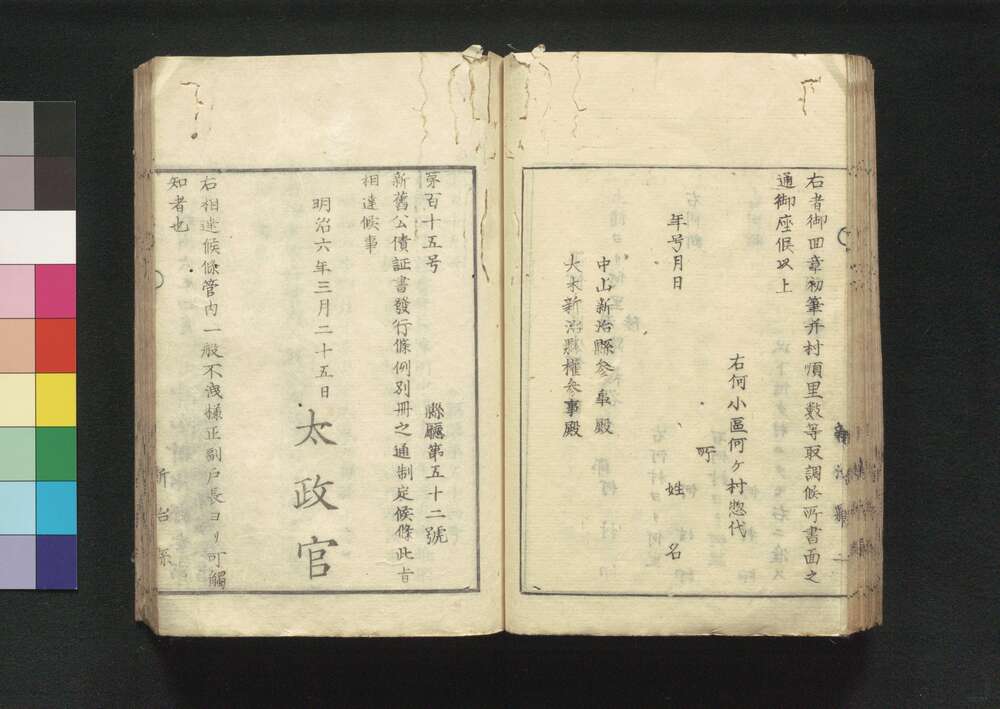 右者御回章初筆并村順里數等取調候所書面之
通御座候以上
年号月日
右何小區何ケ村惣代
姓名
中山新治縣参事殿
大木新治縣權参事殿
第百十五号
縣廳第五十二號
新舊公債証書發行條例別冊之通制定候條此旨
相達候事
明治六年三月二十五日
太政官
右相達候條管内一般不洩樣正副戸長ヨリ可觸
知者也